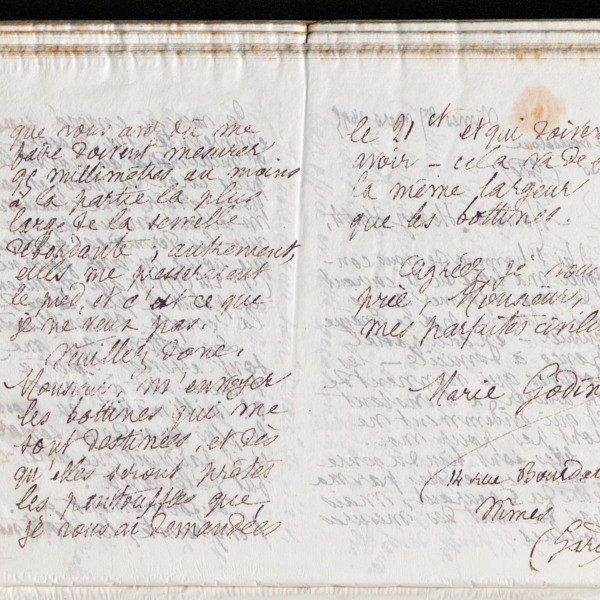 que vous avez dû me
faire doivent mesurer
95 millimètres au moins
à la partie la plus
large de la semelle
débordante, autrement,
elles me presseraient
le pied, et c'est ce que
je ne veux pas.
Veuillez donc,
Monsieur, m'envoyer
les bottines que me
sont destinées, et dès
qu'elles seront prêtes
les pantouffles que
je vous ai demandées
le 21 ct et qui doivent
avoir - cela va de
la même largeur
que les bottines.
Agréez, je vous
prie, Monsieur,
mes parfaites civili
Marie Godin
14 rue Bourda
Nîmes
(Gard